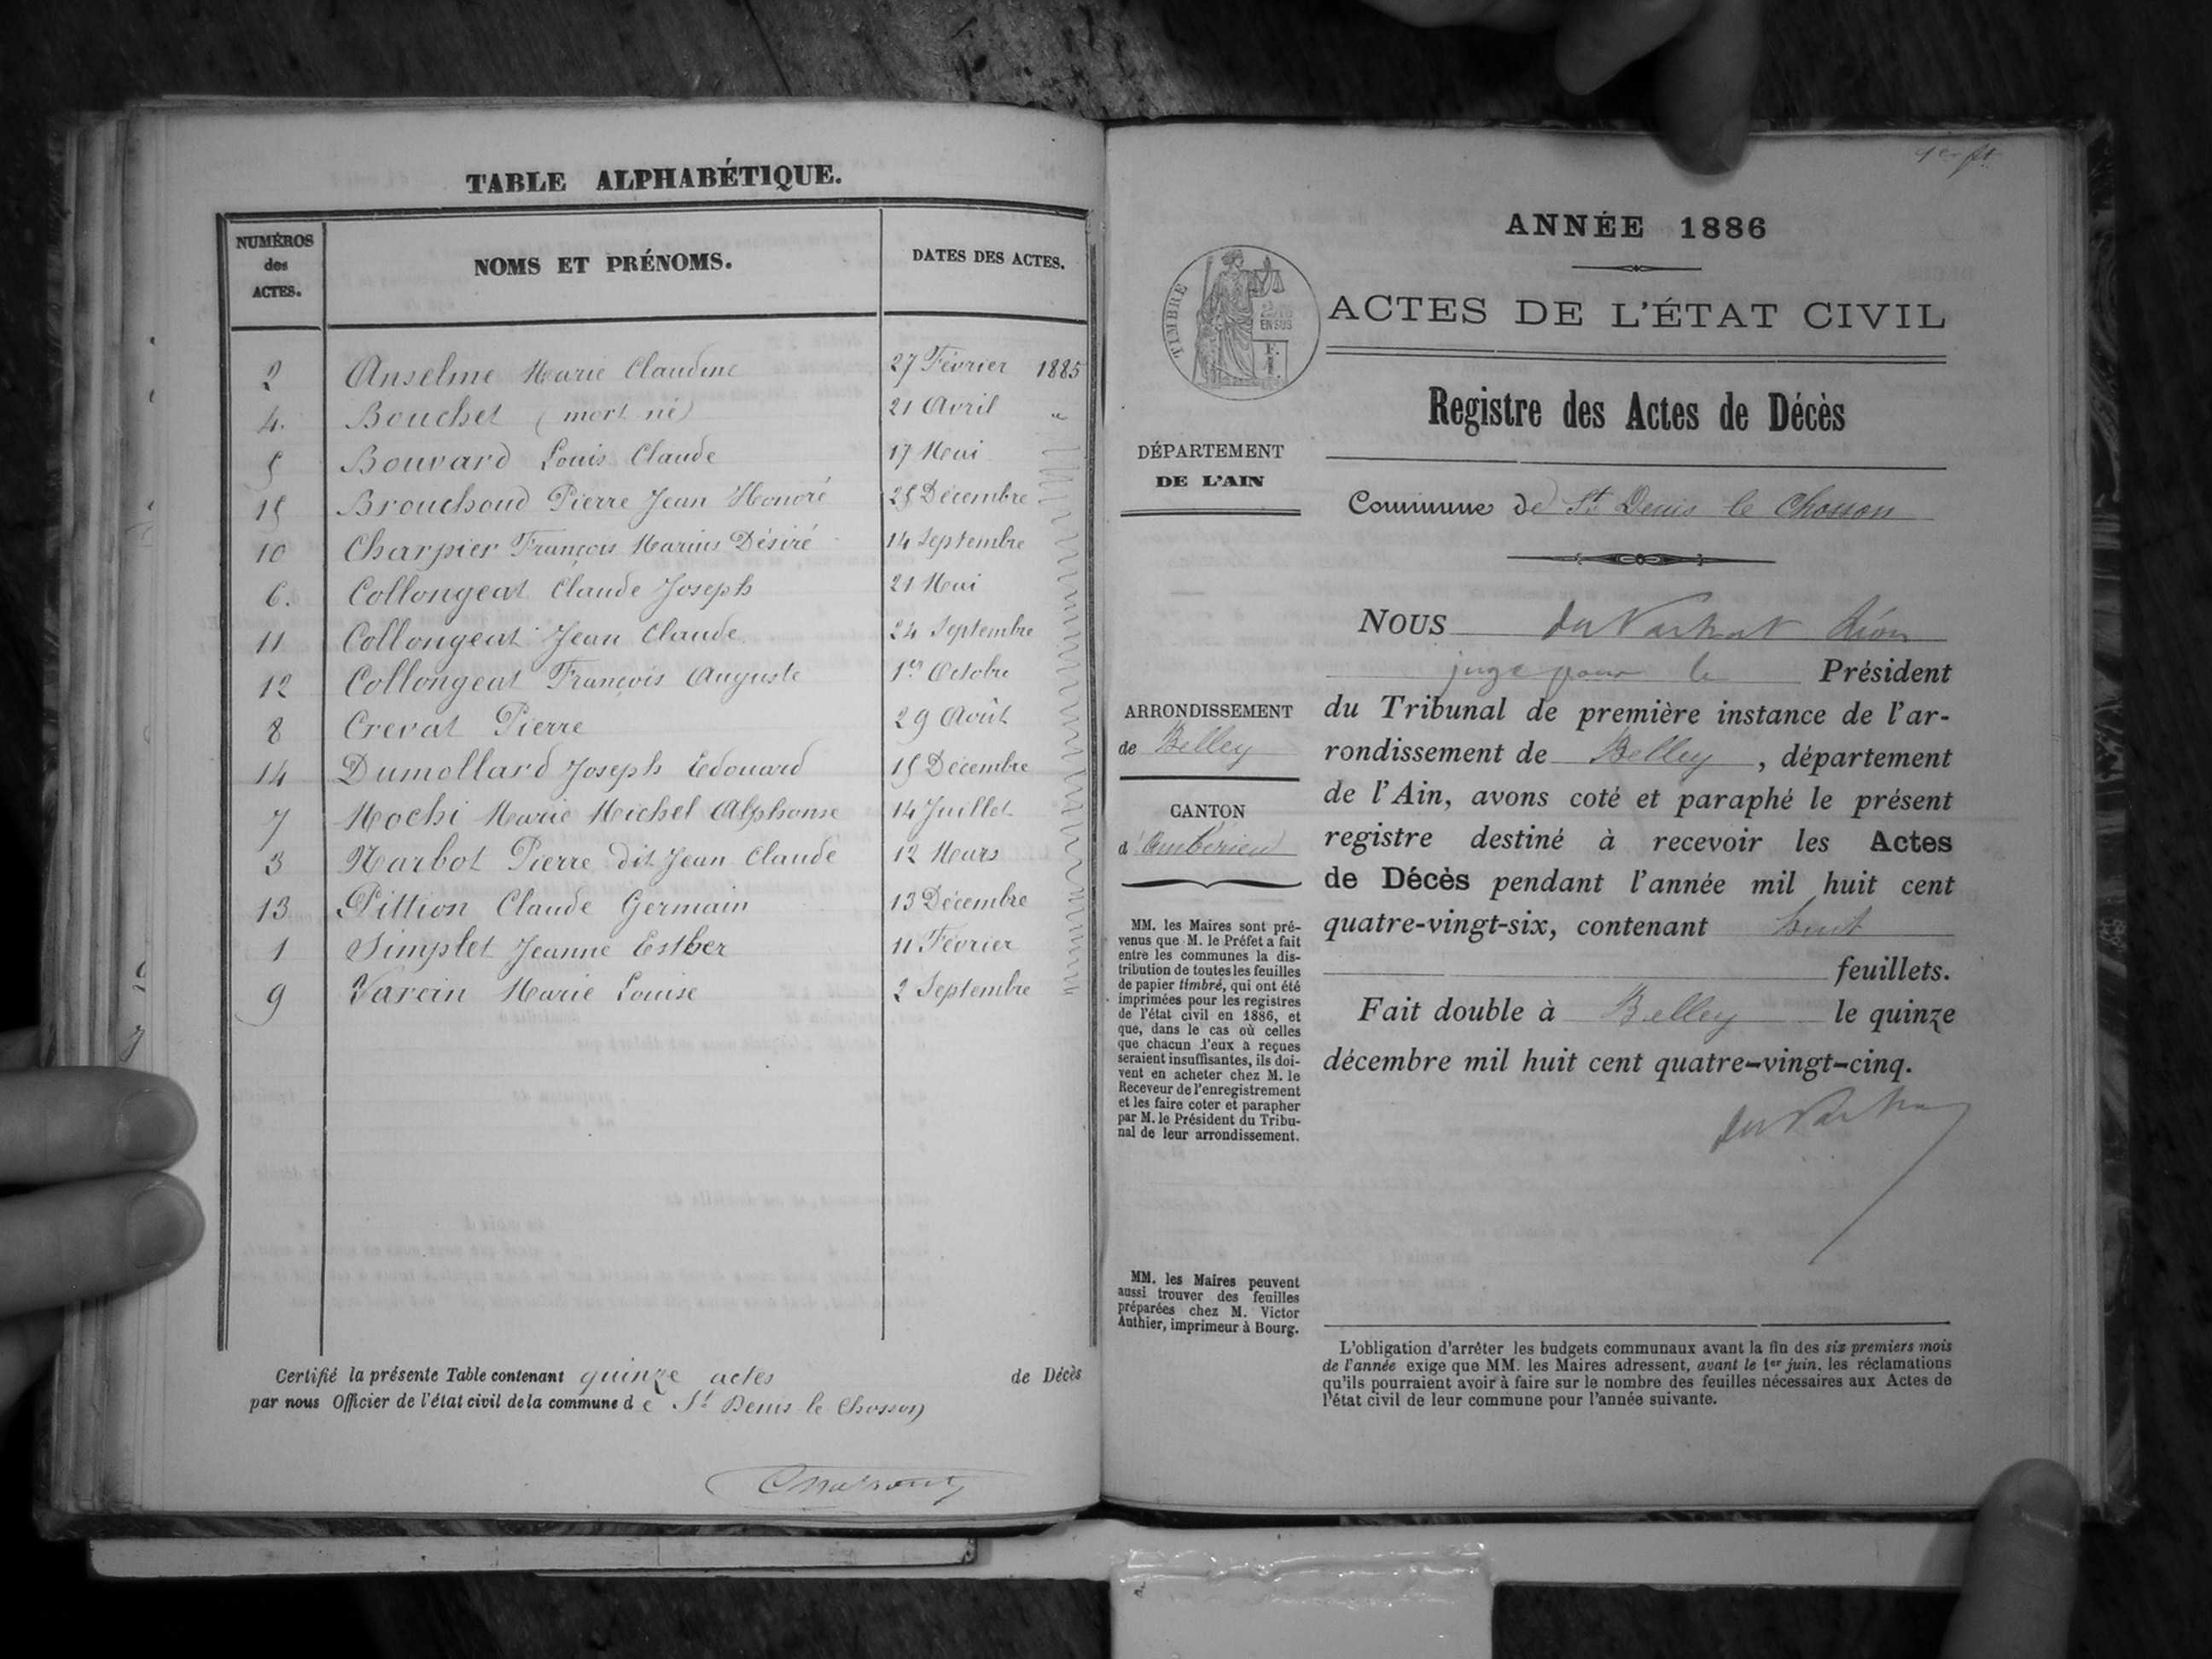 TABLE ALPHABÉTIQUE.
NUMÉROS
des
ACTES.
NOMS ET PRÉNOMS.
DATES DES ACTES.
2 Anselme Marie Claudine 27 Février 1885
4. Bouchet (mort né) 21 Avril "
5 Bouvard Louis Claude 17 Mai
15 Brouchoud Pierre Jean Honoré 25 Décembre
10 Charpier François Marius Désiré 14 Septembre
6. Collongeat Claude Joseph 21 Mai
11 Collongeat Jean Claude 24 Septembre
12 Collongeat François Auguste 1er Octobre
8 Crevat Pierre 29 Août
14 Dumollard Joseph Edouard 15 Décembre
7 Mochi Marie Michel Alphonse 14 Juillet
3 Narbot Pierre dit Jean Claude 12 Mars
13 Pittion Claude Germain 13 Décembre
1 Simplet Jeanne Esther 11 Février
9 Varcin Marie Louise 2 Septembre
Certifié la présente Table contenant quinze actes de Décès
par nous Officier de l'état civil de la commune de St Denis le Chosson
1er ft
ANNÉE 1886
TIMBRE
2/10
EN SUS
F.
1
ACTES DE L'ÉTAT CIVIL
Registre des Actes de Décès
DÉPARTEMENT
DE L'AIN
Commune de St Denis le Chosson
Nous
juge pour le Président
du Tribunal de première instance de l'ar-
rondissement de Belley, département
de l'Ain, avons coté et paraphé le présent
registre destiné à recevoir les Actes
de Décès pendant l'année mil huit cent
quatre-vingt-six, contenant huit
feuillets.
Fait double à Belley le quinze
décembre mil huit cent quatre-vingt-cinq.
ARRONDISSEMENT
de Belley
CANTON
d'Ambérieu
MM. les Maires sont pré-
venus que M. le Préfet a fait
entre les communes la dis-
tribution de toutes les feuilles
de papier timbré, qui ont été
imprimées pour les registres
de l'état civil en 1886, et
que, dans le cas où celles
que chacun d'eux a reçues
seraient insuffisantes, ils doi-
vent en acheter chez M. le
Receveur de l'enregistrement
et les faire coter et parapher
par M. le Président du Tribu-
nal de leur arrondissement.
MM. les Maires peuvent
aussi trouver des feuilles
préparées chez M. Victor
Authier, imprimeur à Bourg.
L'obligation d'arrêter les budgets communaux avant la fin des six premiers mois
de l'année exige que MM. les Maires adressent, avant le 1er juin, les réclamations
qu'ils pourraient avoir à faire sur le nombre des feuilles nécessaires aux Actes de
l'état civil de leur commune pour l'année suivante.